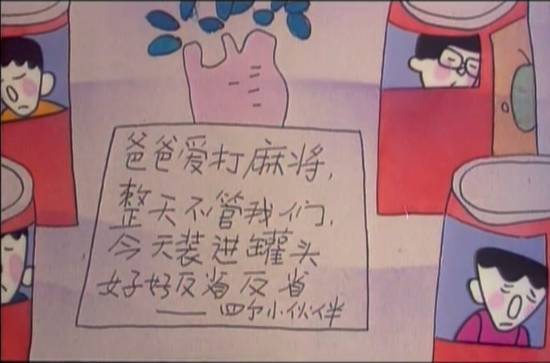 爸爸爱打麻将，
整天不管我们，
今天装进罐头
好好反省反省
——四个小伙伴